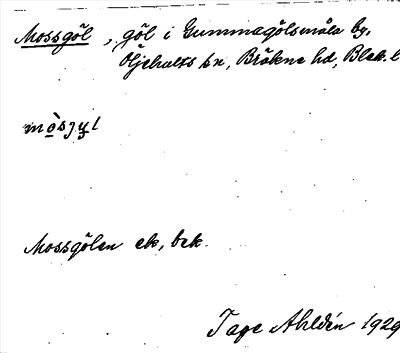 Mossgöl, göl i Gummagölsmåla by,
Öljehults sn, Bräkne hd, Blek. l
mòsjy̲l
Mossgölen ek, bek.
Tage Ahldén 1929